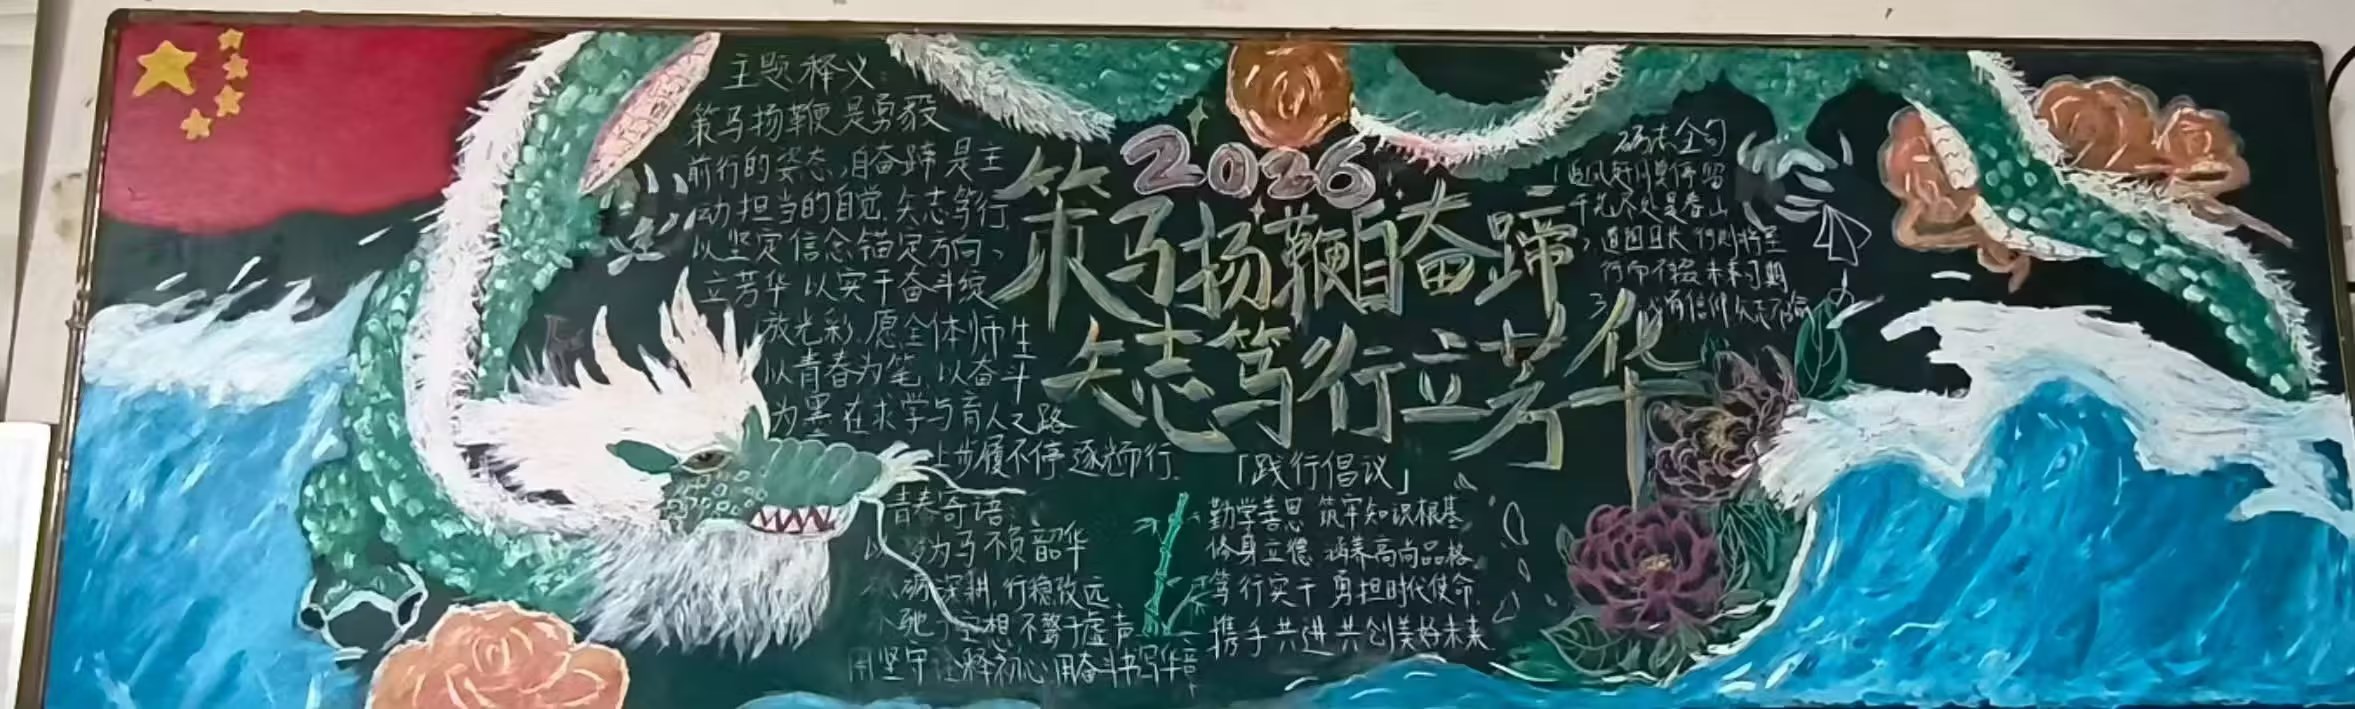 主题释义:
策马扬鞭是勇毅
前行的姿态,自奋蹄是主
动担当的自觉.矢志笃行,
以坚定信念锚定方向,
立芳华以实干奋斗绽
放光彩.愿全体师生
以青春为笔,以奋斗
为墨在求学与育人之路
上步履不停逐光而行.
2026
策马扬鞭自奋蹄
矢志笃行立芳华
青春寄语:
以梦为马不负韶华
砺深耕,行稳致远
不驰于空想不骛于虚声
用坚守诠释初心用奋斗书写华章
「践行倡议」
勤学善思 筑牢知识根基
修身立德 涵养高尚品格
笃行实干 勇担时代使命
携手共进 共创美好未来.
励志金句
1追风赶月莫停留
平芜尽处是春山
2,道阻且长 行则将至
行而不辍 未来可期
3 有信仰矢志不渝